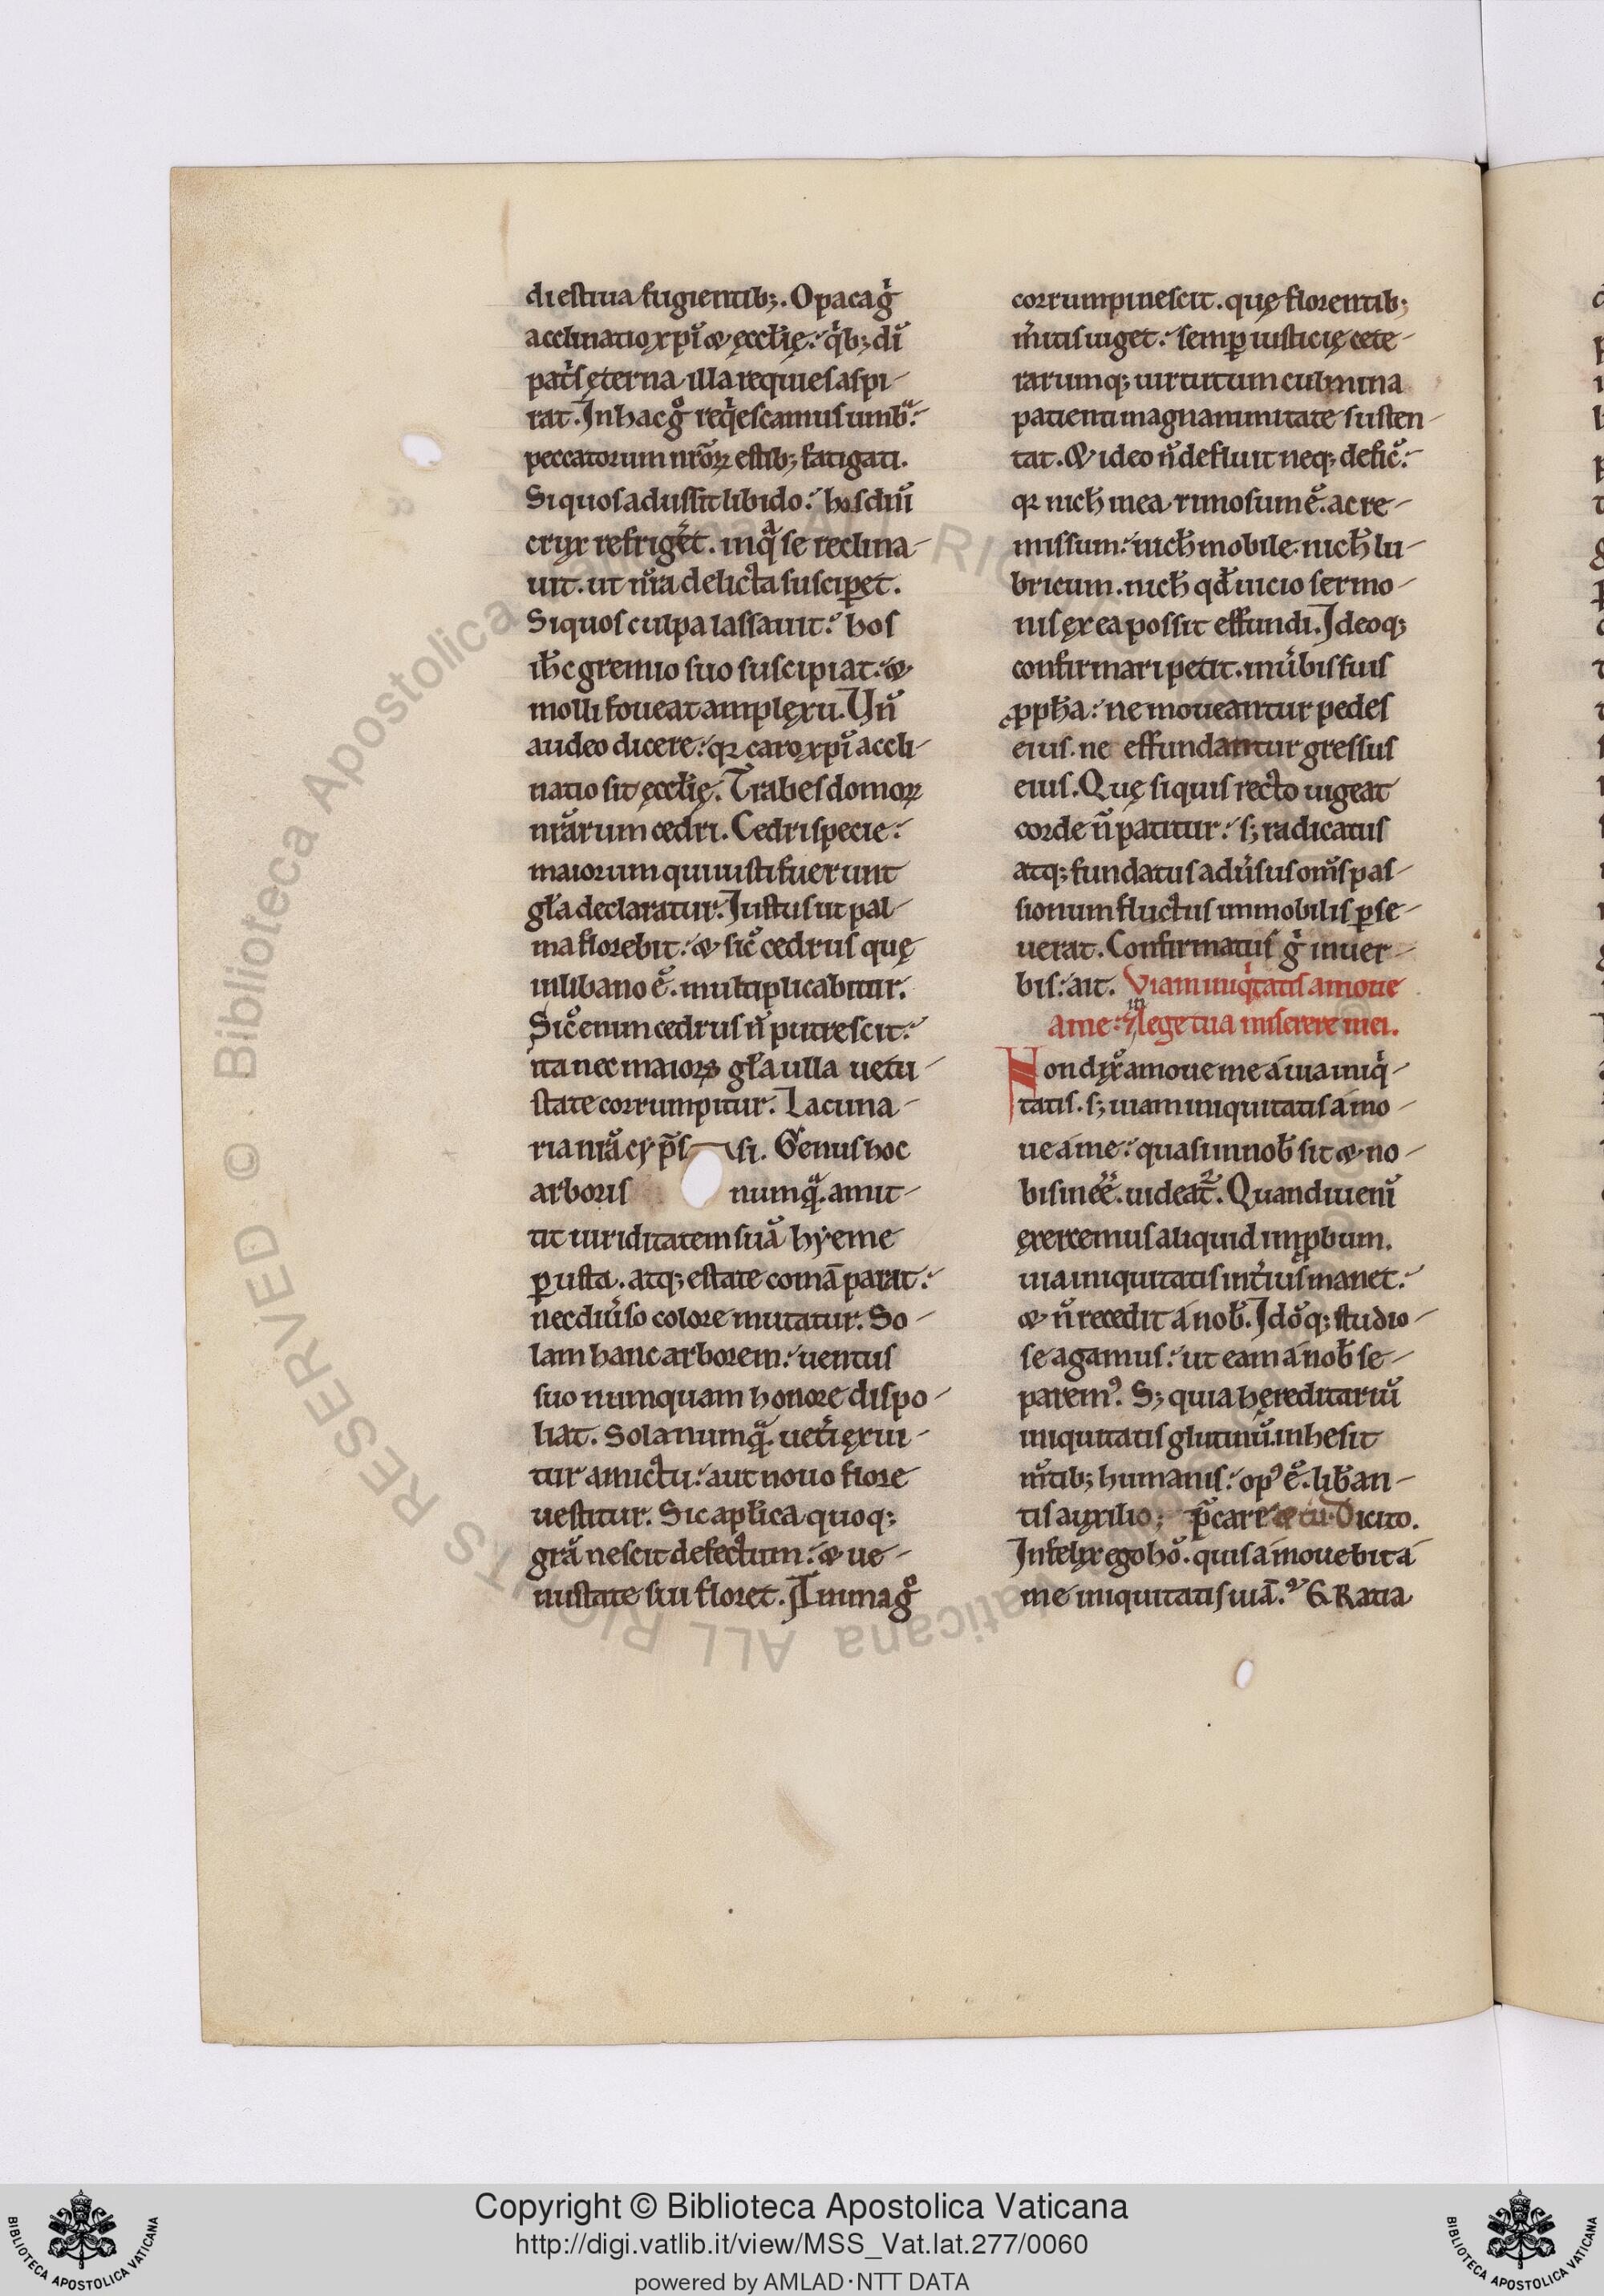 di estiua fugientib;. Opaca gͥ
acclinatio xp̄i & ęccłię. qͥb; di
patͥs ęterna illa requies aspi-
rat. In hac gͦ reqͥescamus umbᵃ.
peccatorum nr̄oꝝ estib; fatigati.
Si quos adussit libido. hos diuı̄
crux refrigͥet. in qᵃ se reclina-
uit. ut nr̄a delicta suscip̲et.
Si quos culpa lassauit. hos
ih̄c gremio suo suscipiat. &
molli foueat amplexu. Vn̄
audeo dicere. qꝛ caro xp̄i accli-
natio sit ęccłię. Trabes domoꝝ
nr̄arum cedri. Cedri specie.
maiorum qui iusti fuerunt
gła declaratur. Iustus ut pal-
ma florebit. & sic̄ cedrus quę
in libano ē. multiplicabitur.
Sic̄ enim cedrus n̄ putrescit.
ita nec maioꝝ gła ulla uetu-
state corrumpitur. Lacuna-
ria nr̄a cyp̄s si. Genus hoc
arboris numqᵃ. amit-
tit uiriditatem suā hẏeme
ꝑusta. atq; estate comā parat.
nec diuͥso colore mutatur. So-
lam hanc arborem. uentus
suo numquam honore dispo-
liat. Sola numqᵃ. uetͥi exui-
tur amictu. aut nouo flore
uestitur. Sic apłica quoq;
gr̄a nescit defectum. & ue-
nustate sui floret. Animagͦ
corrumpi nescit. quę florentib;
mͥitis uiget. semꝑ iusticię cete-
rarumq; uirtutum culmina
patienti magnanimitate susten-
tat. & ideo n̄ defluit neq; defic̄.
qꝛ nich̄ in ea rimosum ē. ac re-
missum. nich̄ mobile. nich̄ lu-
bricum. nich̄ qd̄ uicio sermo-
nis ex ea possit effundi. Ideoq;
confirmari petit. in uͥbis suis
ꝓph̄a. ne moueantur pedes
eius. ne effundantur gressus
eius. Quę siquis recto uigeat
corde n̄ patitur. s; radicatus
atq; fundatus aduͥsus om̄s pas-
sionum fluctus immobilis ꝑse-
uerat. Confirmatus gͥ in uer-
bis. ait. Viam iniqͥtatis amoue
a me. & in lege tua miserere mei.
Non dix̄ amoue me á uia iniqͥ-
tatis. s; uiam iniquitatis amo-
ue á me. quasi in nob̄ sit & no-
bis ineēͤ. uideat᷑. Quandiu enī
exercemus aliquid imꝓbum.
uia iniquitatis intͥius manet.
& n̄ recedit á nob̄. Idōq; studio-
se agamus. ut eam á nob̄ se-
paremꝰ. S; quia hęreditariū
iniquitatis glutinū. inhesit
mͤtib; humanis. opꝰ ē. lib̄an-
tis auxilio; p̄care & tu. Dicito.
Infelix ego hō. quis amouebit á
me iniquitatis uiā.? GRatia
Copyright © Biblioteca Apostolica Vaticana
http://digi.vatlib.it/view/MSS_Vat.lat.277/0060
powered by AMLAD·NTT DATA